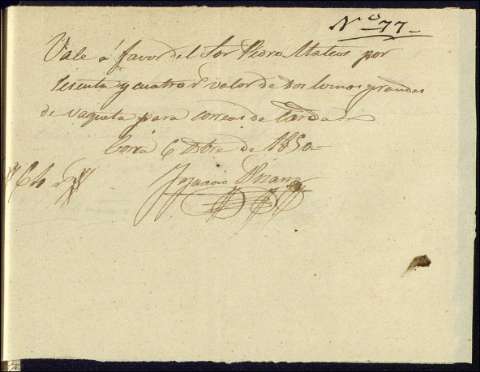 N.º 77.
Vale á favor del Sor Pedro Mateus por
sesenta y cuatro r.s valor de dos lomos grandes
de vaqueta para correas de
6 Dbre de 1850
#64 r.s#
Ignacio